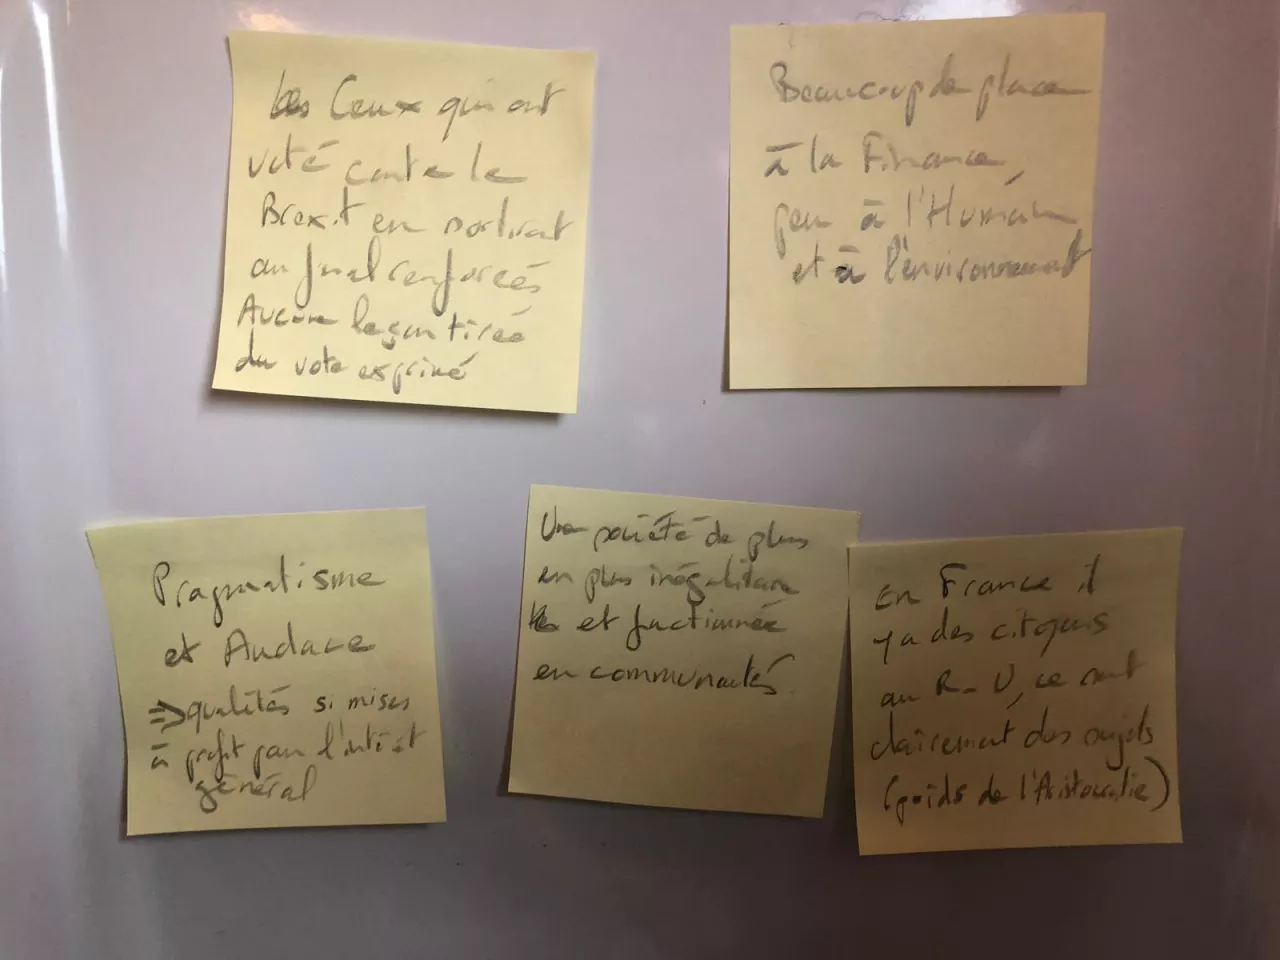 Ceux qui ont
voté contre le
Brexit en sortirat
au final renforcés
Aucune leçon tirée
du vote exprimé
Beaucoup de place
à la Finance,
peu à l'Humain
et à l'environnement
Pragmatisme
et Audace
=> qualités si mises
à profit pour l'intérêt
général
Une société de plus
en plus inégalitaire
et fractionnée
en communautés.
En France il
y a des citoyens
au R-U, ce sont
clairement des sujets
(poids de l'Aristocratie)